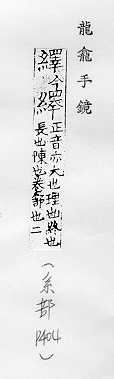 龍龕手鏡
繹今繹正音亦大也理也終也
長也陳也卷部也二
(系部 P404)